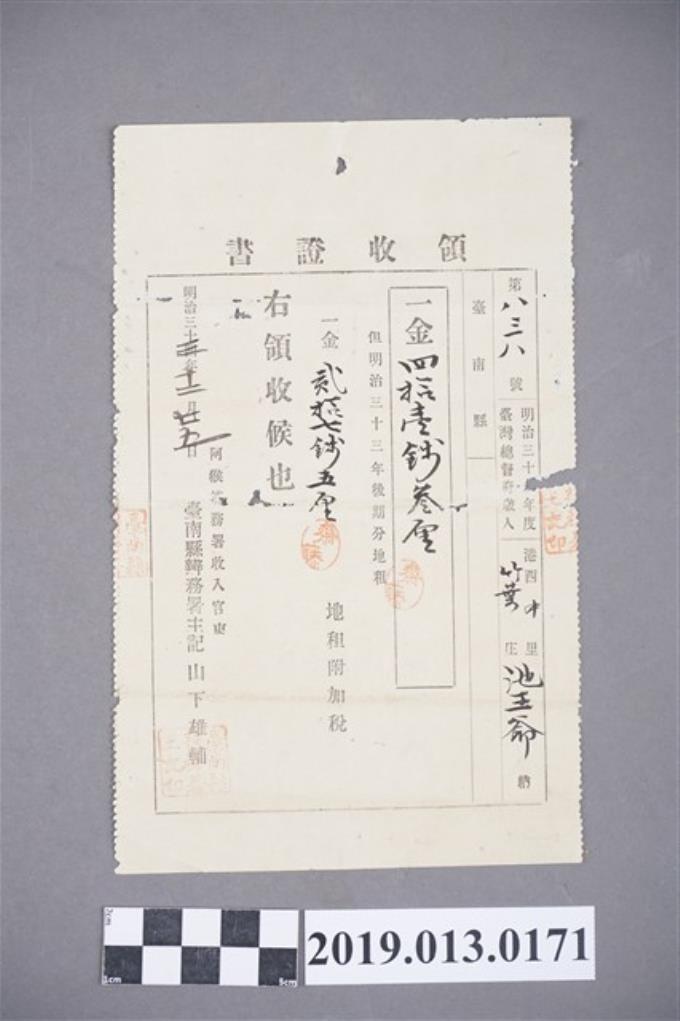 領收證書
第八三八號 明治三十 年度臺灣總督府歲入 港西中里竹葉庄 池王爺 納
臺南縣
一金四拾壹錢叁厘
但明治三十三年後期分地租
一金貳拾七錢五厘 地租附加稅
右領收候也
明治三十三年十二月廿五日
阿猴 務署收入官吏
臺南縣辨務署主記山下雄輔
2cm
1cm
5cm
2019.013.0171